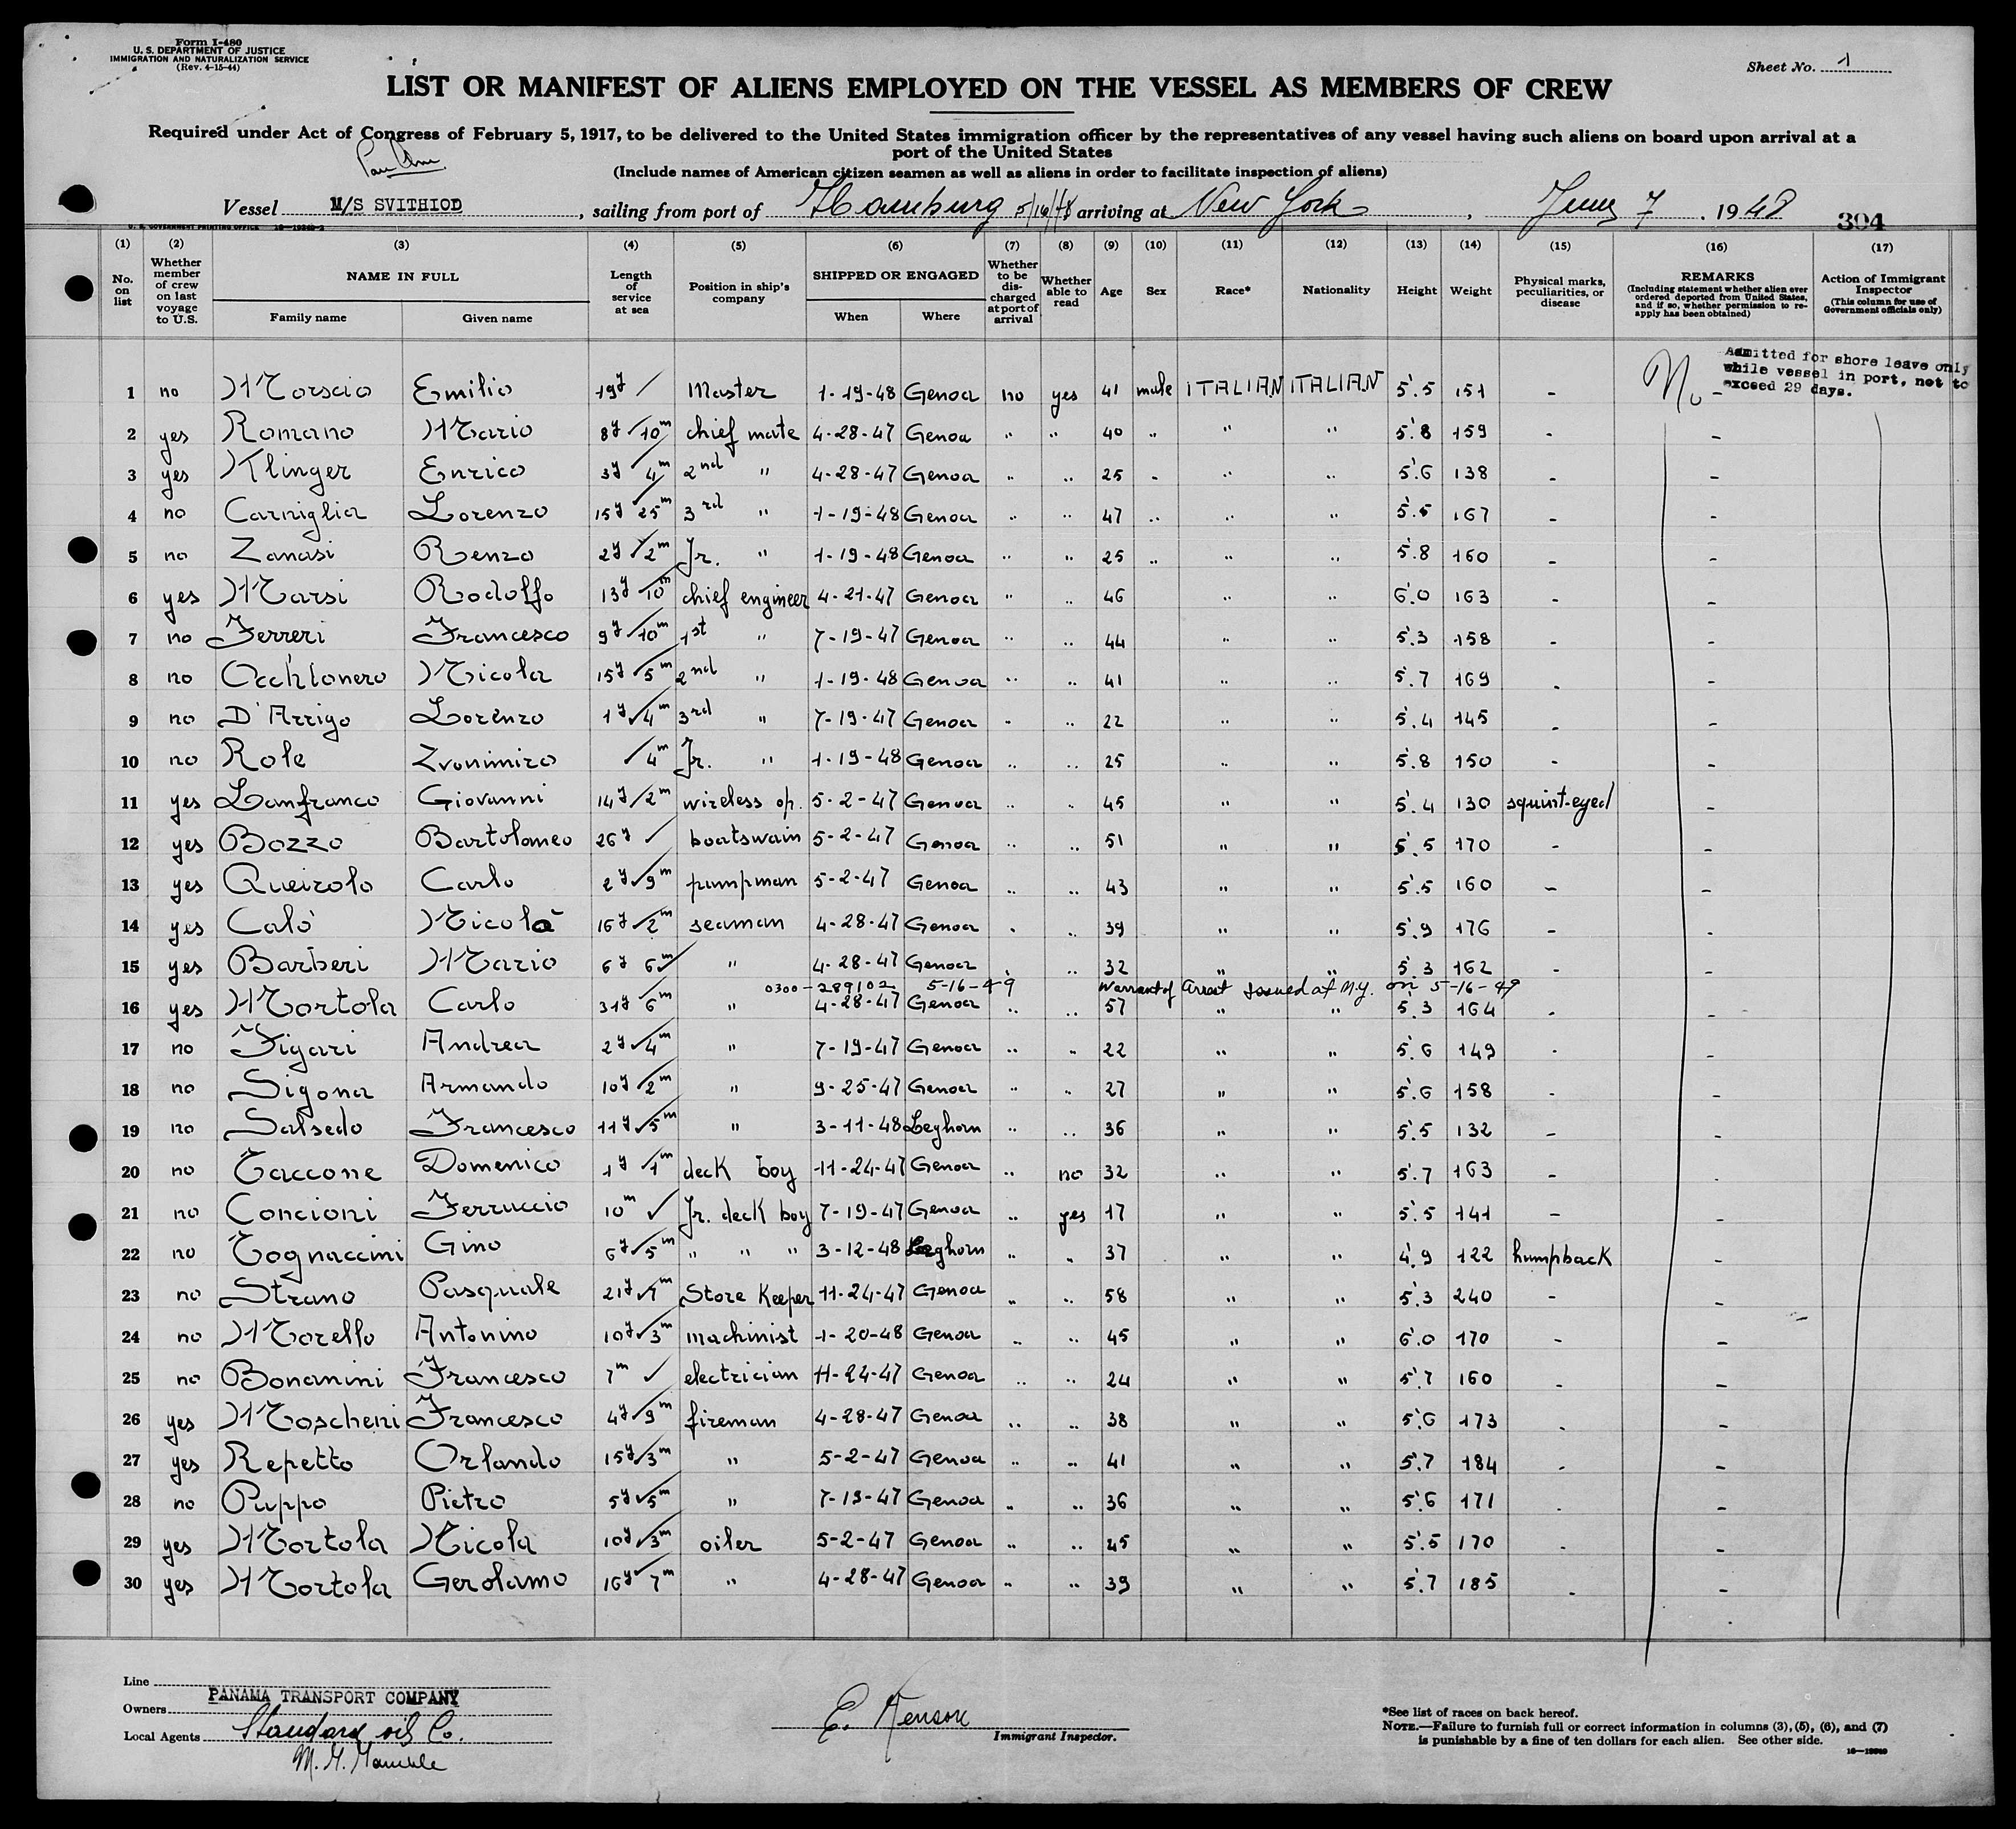 Form I-480
U. S. DEPARTMENT OF JUSTICE
IMMIGRATION AND NATURALIZATION SERVICE
(Rev. 4-15-44)
Sheet No. 1
LIST OR MANIFEST OF ALIENS EMPLOYED ON THE VESSEL AS MEMBERS OF CREW
Required under Act of Congress of February 5, 1917, to be delivered to the United States immigration officer by the representatives of any vessel having such aliens on board upon arrival at a
port of the United States
(Include names of American citizen seamen as well as aliens in order to facilitate inspection of aliens)
Vessel M/S SVITHIOD, sailing from port of Hamburg 5/16/48 arriving at New York, June 7, 1948
304
U. S. GOVERNMENT PRINTING OFFICE
(1) (2) (3) (4) (5) (6) (7) (8) (9) (10) (11) (12) (13) (14) (15) (16) (17)
No. on list
Whether member of crew on last voyage to U.S.
NAME IN FULL
Family name
Given name
Length of service at sea
Position in ship's company
SHIPPED OR ENGAGED
When
Where
Whether to be discharged at port of arrival
Whether able to read
Age
Sex
Race*
Nationality
Height
Weight
Physical marks, peculiarities, or disease
REMARKS
(Including statement whether alien ever ordered deported from United States, and if so, whether permission to reapply has been obtained)
Action of Immigrant Inspector
(This column for use of Government officials only)
Admitted for shore leave only
while vessel in port, not to
exceed 29 days.
1 no Morscio Emilio 19y / Master 1-19-48 Genoa no yes 41 male ITALIAN ITALIAN 5'.5 151 - No -
2 yes Romano Mario 8y 10m chief mate 4-28-47 Genoa " " 40 " " " 5'.8 159 - -
3 yes Klinger Enrico 3y 4m 2nd " 4-28-47 Genoa " " 25 " " " 5'.6 138 - -
4 no Carniglia Lorenzo 15y 25m 3rd " 1-19-48 Genoa " " 47 " " " 5'.5 167 - -
5 no Zanasi Renzo 2y 2m Jr. " 1-19-48 Genoa " " 25 " " " 5'.8 160 - -
6 yes Marsi Rodolfo 13y 10m chief engineer 4-21-47 Genoa " " 46 " " 6'.0 163 - -
7 no Ferreri Francesco 9y 10m 1st " 7-19-47 Genoa " " 44 " " 5'.3 158 - -
8 no Occhlonero Nicola 15y 5m 2nd " 1-19-48 Genoa " " 41 " " 5'.7 169 - -
9 no D'Arrigo Lorenzo 1y 4m 3rd " 7-19-47 Genoa " " 22 " " 5'.4 145 - -
10 no Role Zvonimiro 4m Jr. " 1-19-48 Genoa " " 25 " " 5'.8 150 - -
11 yes Lanfranco Giovanni 14y 2m wireless op. 5-2-47 Genoa " " 45 " " 5'.4 130 squint-eyed -
12 yes Bozzo Bartolomeo 26y boatswain 5-2-47 Genoa " " 51 " " 5'.5 170 - -
13 yes Queirolo Carlo 2y 9m pumpman 5-2-47 Genoa " " 43 " " 5'.5 160 - -
14 yes Calò Nicolà 16y 2m seaman 4-28-47 Genoa " " 39 " " 5'.9 176 - -
15 yes Barberi Mario 6y 6m " 4-28-47 Genoa " " 32 " " 5'.3 162 - -
0300-289102 5-16-49 Warrant of Arrest Issued at N.Y. on 5-16-49
16 yes Mortola Carlo 31y 6m " 4-28-47 Genoa " " 57 " " 5'.3 164 - -
17 no Figari Andrea 2y 4m " 7-19-47 Genoa " " 22 " " 5'.6 149 - -
18 no Sigona Armando 10y 2m " 9-25-47 Genoa " " 27 " " 5'.6 158 - -
19 no Salsedo Francesco 11y 5m " 3-11-48 Leghorn " " 36 " " 5'.5 132 - -
20 no Taccone Domenico 1y 1m deck boy 11-24-47 Genoa " no 32 " " 5'.7 163 - -
21 no Concioni Ferruccio 10m Jr. deck boy 7-19-47 Genoa " yes 17 " " 5'.5 141 - -
22 no Tognaccini Gino 6y 5m " " " 3-12-48 Leghorn " " 37 " " 4'.9 122 humpback -
23 no Strano Pasquale 21y 1m Store Keeper 11-24-47 Genoa " " 58 " " 5'.3 240 - -
24 no Morello Antonino 10y 3m machinist 1-20-48 Genoa " " 45 " " 6'.0 170 - -
25 no Bonanini Francesco 7m electrician 11-24-47 Genoa " " 24 " " 5'.7 160 - -
26 yes Moscheni Francesco 4y 9m fireman 4-28-47 Genoa " " 38 " " 5'.6 173 - -
27 yes Repetto Orlando 15y 3m " 5-2-47 Genoa " " 41 " " 5'.7 184 - -
28 no Puppo Pietro 5y 5m " 7-19-47 Genoa " " 36 " " 5'.6 171 - -
29 yes Mortola Nicola 10y 3m oiler 5-2-47 Genoa " " 45 " " 5'.5 170 - -
30 yes Mortola Gerolamo 16y 7m " 4-28-47 Genoa " " 39 " " 5'.7 185 - -
Line
Owners PANAMA TRANSPORT COMPANY
Local Agents Standard oil Co.
E. Henson
Immigrant Inspector.
*See list of races on back hereof.
NOTE.—Failure to furnish full or correct information in columns (3), (5), (6), and (7)
is punishable by a fine of ten dollars for each alien. See other side.